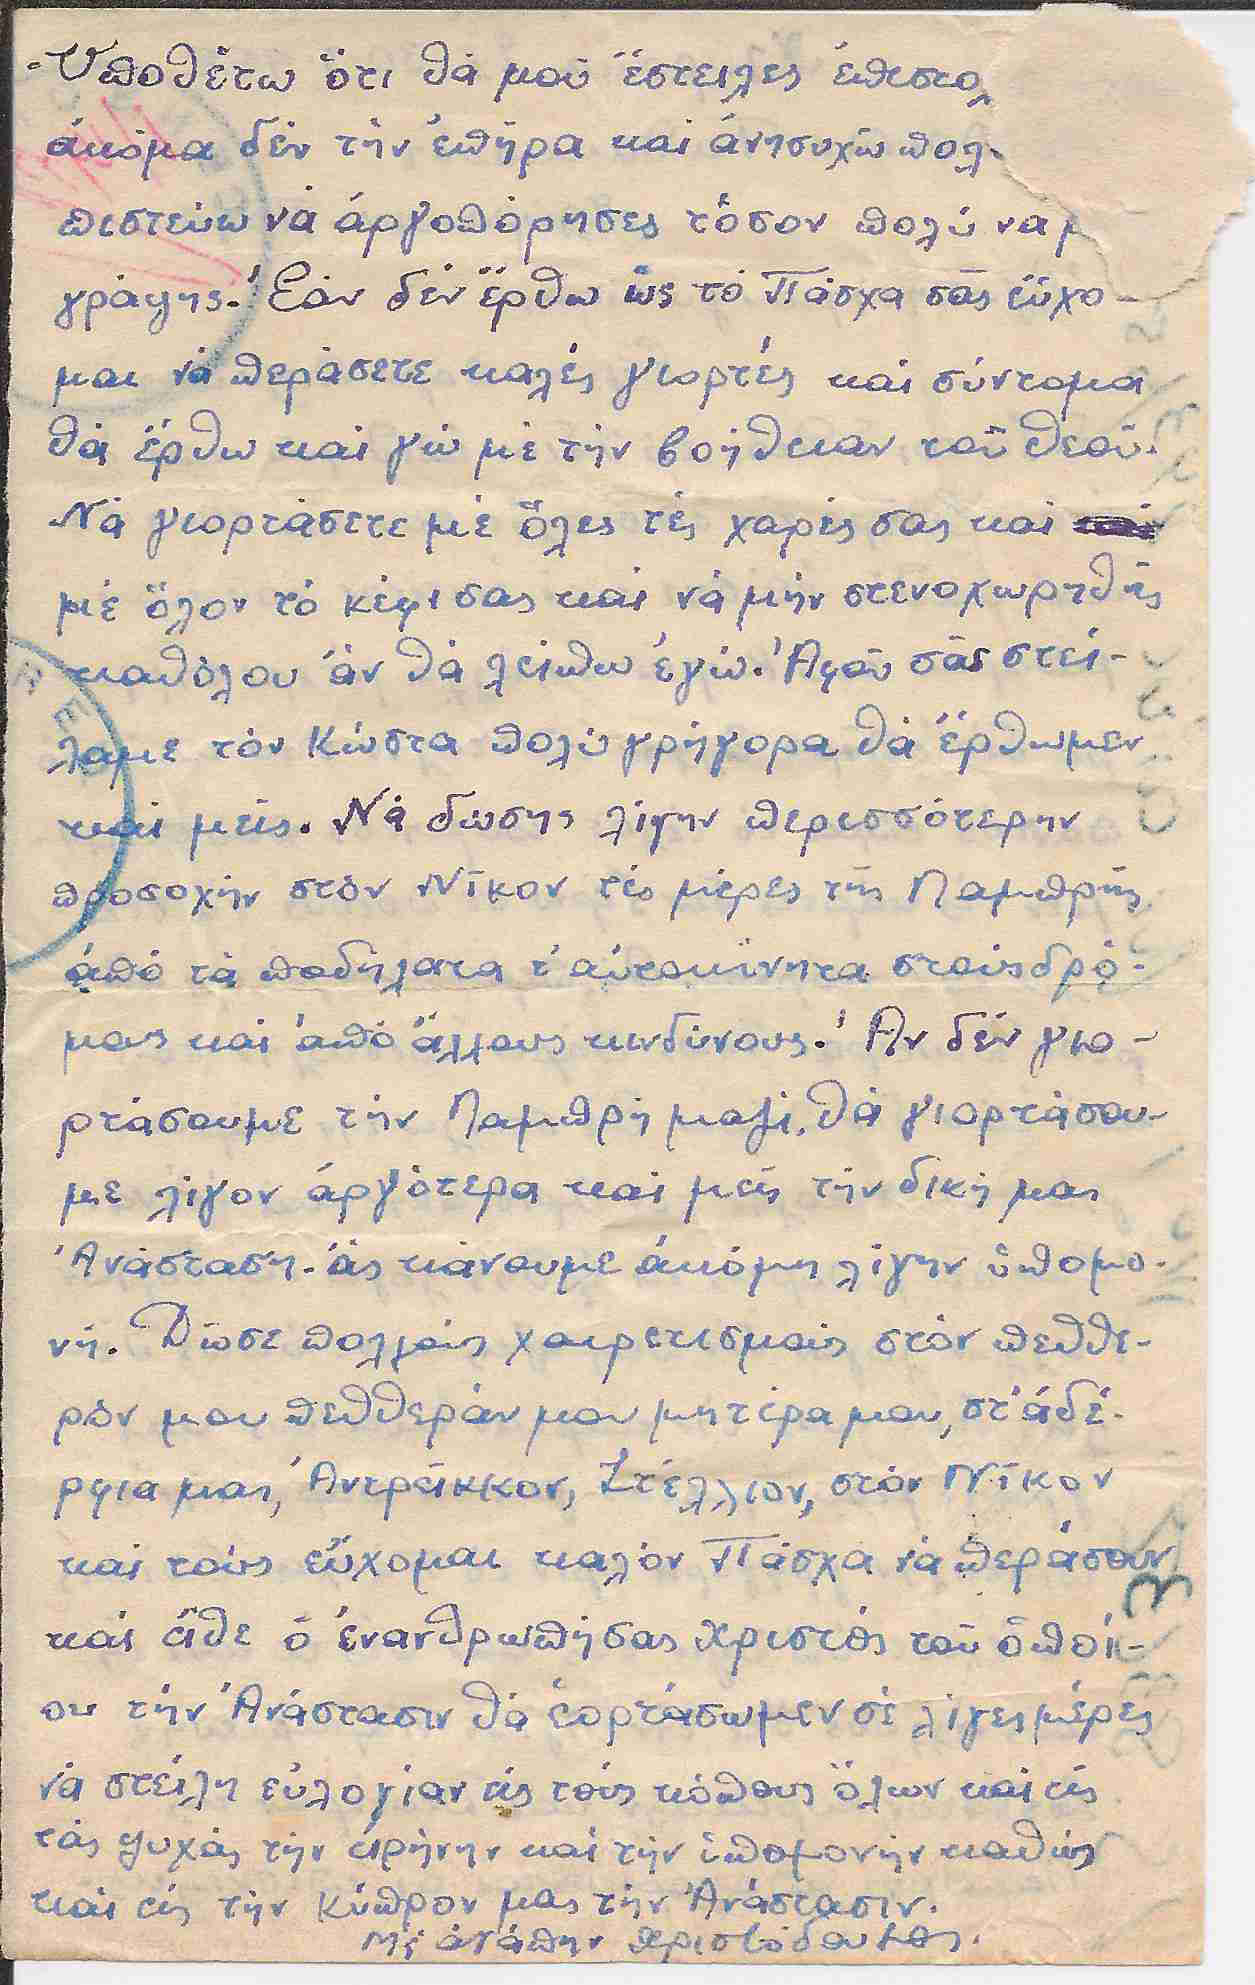 Ὑποθέτω ὅτι θά μοῦ ἔστειλες ἐπιστολ
ἀκόμα δέν τήν ἐπῆρα καί ἀνησυχῶ πολ
πιστεύω νά ἀργοπόρησες τόσον πολύ να μ
γράψης. Ἐάν δέν ἔρθω ὡς τό Πάσχα σᾶς εὔχο-
μαι νά περάσετε καλές γιορτές καί σύντομα
θά ἔρθω καί γώ μέ τήν βοήθειαν τοῦ θεοῦ.
Νά γιορτάσετε μέ ὅλες τές χαρές σας καί
μέ ὅλον τό κέφι σας καί νά μήν στενοχωρηθῆς
καθόλου ἄν θά λείπω ἐγώ. Ἀφοῦ σᾶς στεί-
λαμε τόν Κώστα πολύ γρήγορα θά ἔρθωμεν
καί μεῖς. Νά δώσης λίγην περισσότερην
προσοχήν στόν Νῖκον τές μέρες τῆς Λαμπρῆς
ἀπό τά ποδήλατα τ' αὐτοκίνητα στούς δρό-
μους καί ἀπό ἄλλους κινδύνους. Ἄν δέν γιο-
ρτάσουμε τήν Λαμπρή μαζί, θά γιορτάσου-
με λίγον ἀργότερα καί μεῖς τήν δική μας
Ἀνάσταση. ἄς κάνουμε ἀκόμη λίγην ὑπομο-
νή. Δῶσε πολλούς χαιρετισμούς στόν πεθθε-
ρόν μου πεθθεράν μου μητέρα μου, στ' ἀδέ-
ρφια μας, Ἀντρέϊκκον, Στέλλιον, στόν Νῖκον
καί τούς εὔχομαι καλόν Πάσχα νά περάσουν
καί εἴθε ὁ ἐνανθρωπήσας Χριστός τοῦ ὁποί-
ου τήν Ἀνάστασιν θά ἑορτάσωμεν σέ λίγες μέρες
νά στείλη εὐλογίαν εἰς τούς κόπους ὅλων καί εἰς
τάς ψυχάς τήν εἰρήνην καί τήν ὑπομονήν καθώς
καί εἰς τήν Κύπρον μας τήν Ἀνάστασιν.
Μέ ἀγάπην Χριστόδουλος.